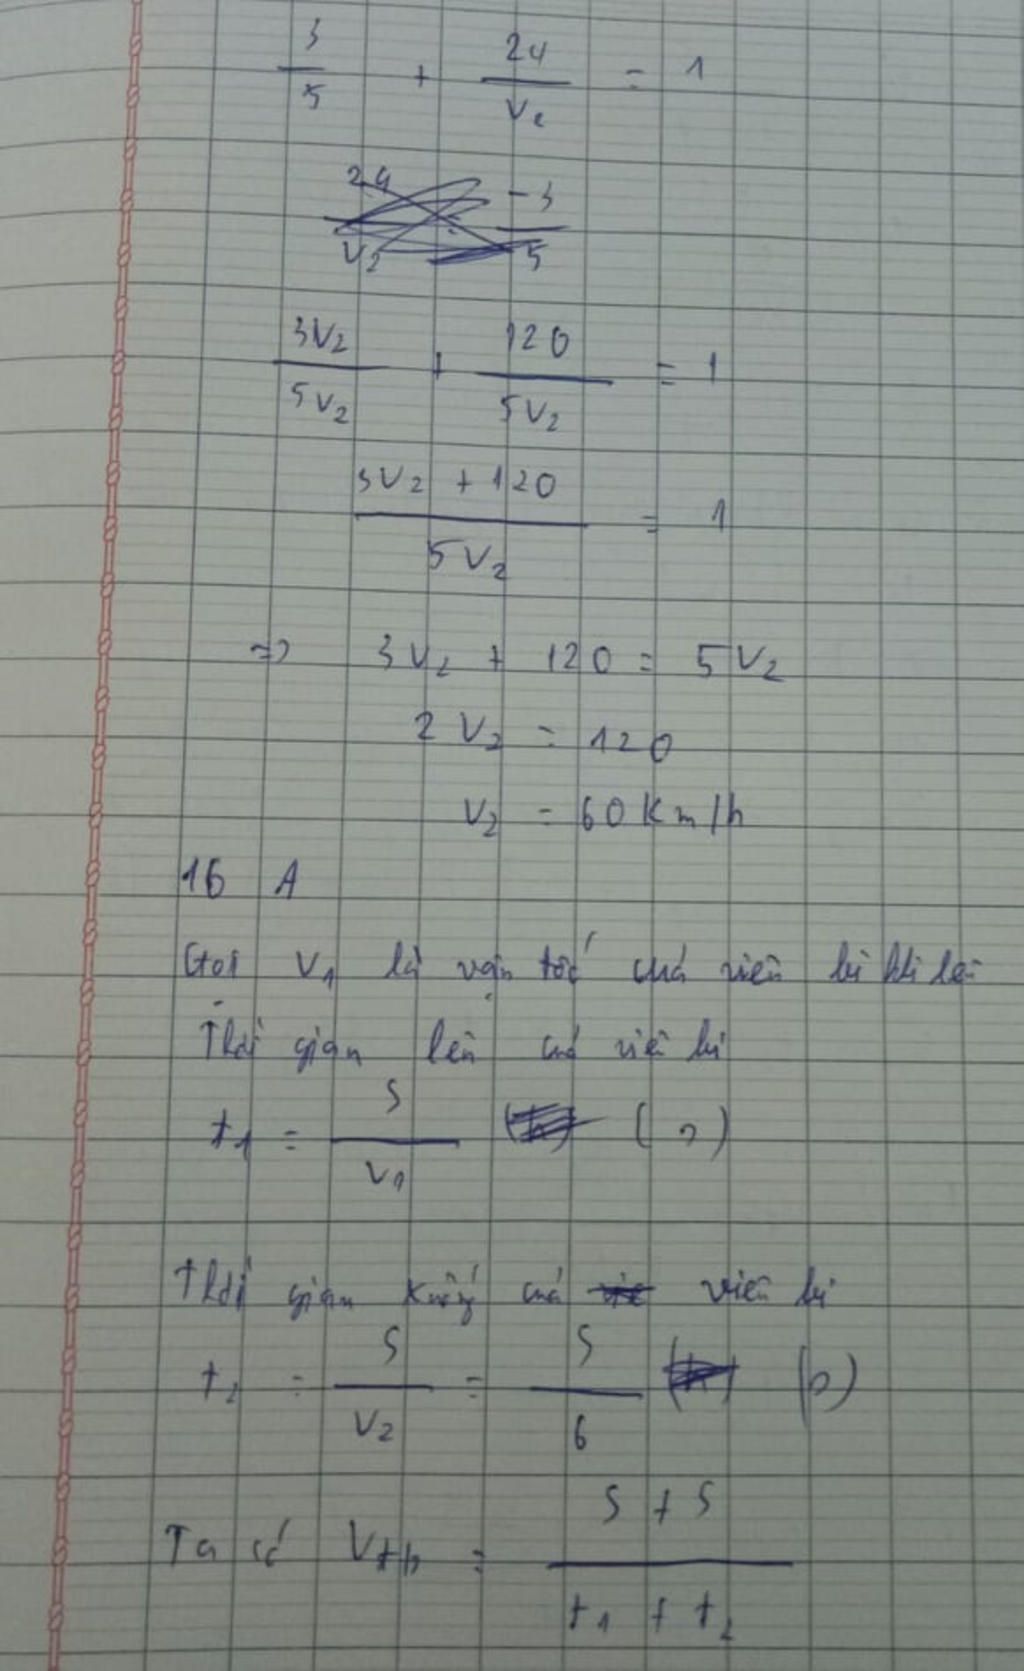 3/5 + 24/V2 = 1
24/V2 = -3/5
3V2/5V2 + 120/5V2 = 1
(3V2 + 120)/5V2 = 1
=> 3V2 + 120 = 5V2
2V2 = 120
V2 = 60 Km/h
16 A
Gọi V1 là vận tốc của viên bi khi lên
Thời gian lên của viên bi
t1 = S/V1 (s)
Thời gian xuống của viên bi
t2 = S/V2 = S/6 (s)
Ta có Vtb = (S + S)/(t1 + t2)